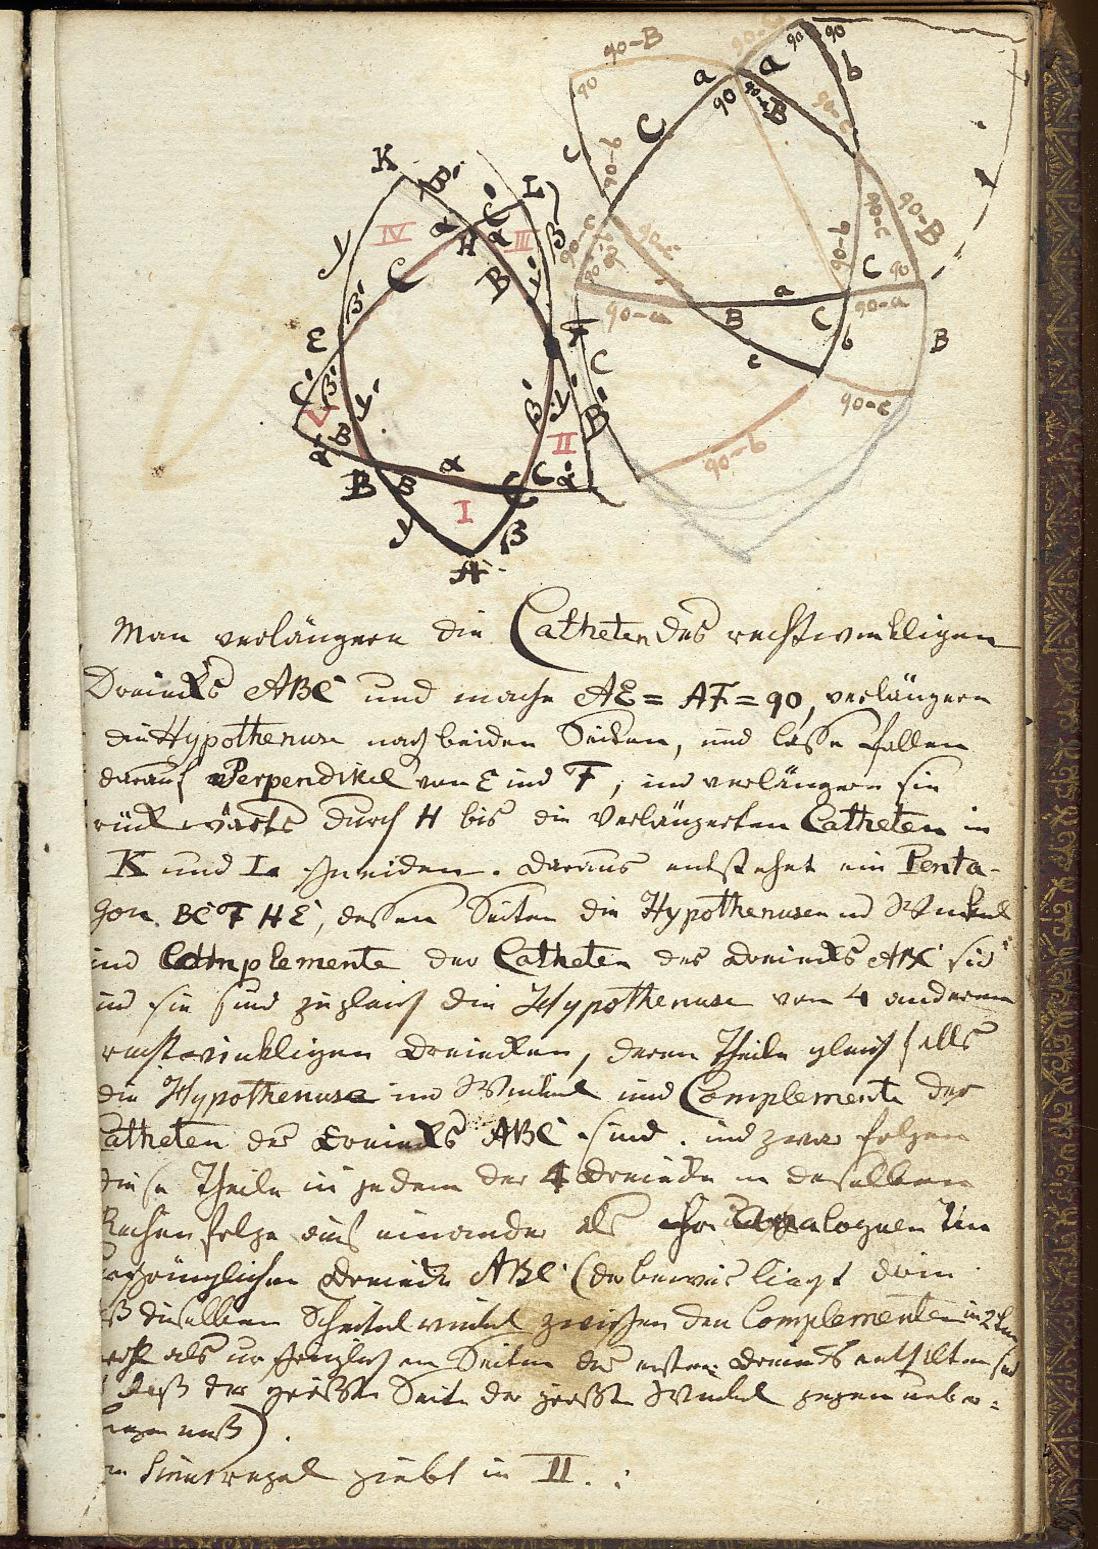 90-B
90-c
90
90
a
a
b
90
90
90-c
B
90-c
C
c
90-b
90-c
90-c
90-B
90-b
C
90
a
90-a
90-a
B
C
b
c
B
90-c
90-b
C
K
B'
C'
L
IV
α
H
α
III
β'
γ
C
B
γ'
β'
E
F
C'
β'
γ'
β'
γ'
B'
V
B
II
α'
α
C
α'
B
B
C
γ
I
β
A
Man verlängere die Catheten des rechtwinkligen
Dreiecks ABC und mache AE = AF = 90, verlängere
die Hypothenuse nach beiden Seiten, und lasse fallen
darauf Perpendikel von E und F, und verlängere sie
rückwärts durch H bis die verlängerten Catheten in
K und L schneiden. daraus entstehet ein Penta-
gon BCFHE, dessen Seiten die Hypothenusen und Winkel
und Complemente der Catheten des Dreiecks ABC sind
und sie sind zugleich die Hypothenuse von 4 anderen
rechtwinkligen Dreiecken, deren Theile gleichfalls
die Hypothenuse und Winkel und Complemente der
Catheten des Dreiecks ABC sind. und zwar folgen
diese Theile in jedem der 4 Dreiecke in derselben
Reihenfolge auf einander als Analoguen im
ursprünglichen Dreieck ABC (der beweis liegt darin
daß dieselben Scheitelwinkel zwischen den Complementen
als ursprünglichen Seiten des ersten Dreiecks enthalten sind
daß der größten Seite der größte Winkel gegenueber=
liegen muß).
Sinusregel giebt in II. :